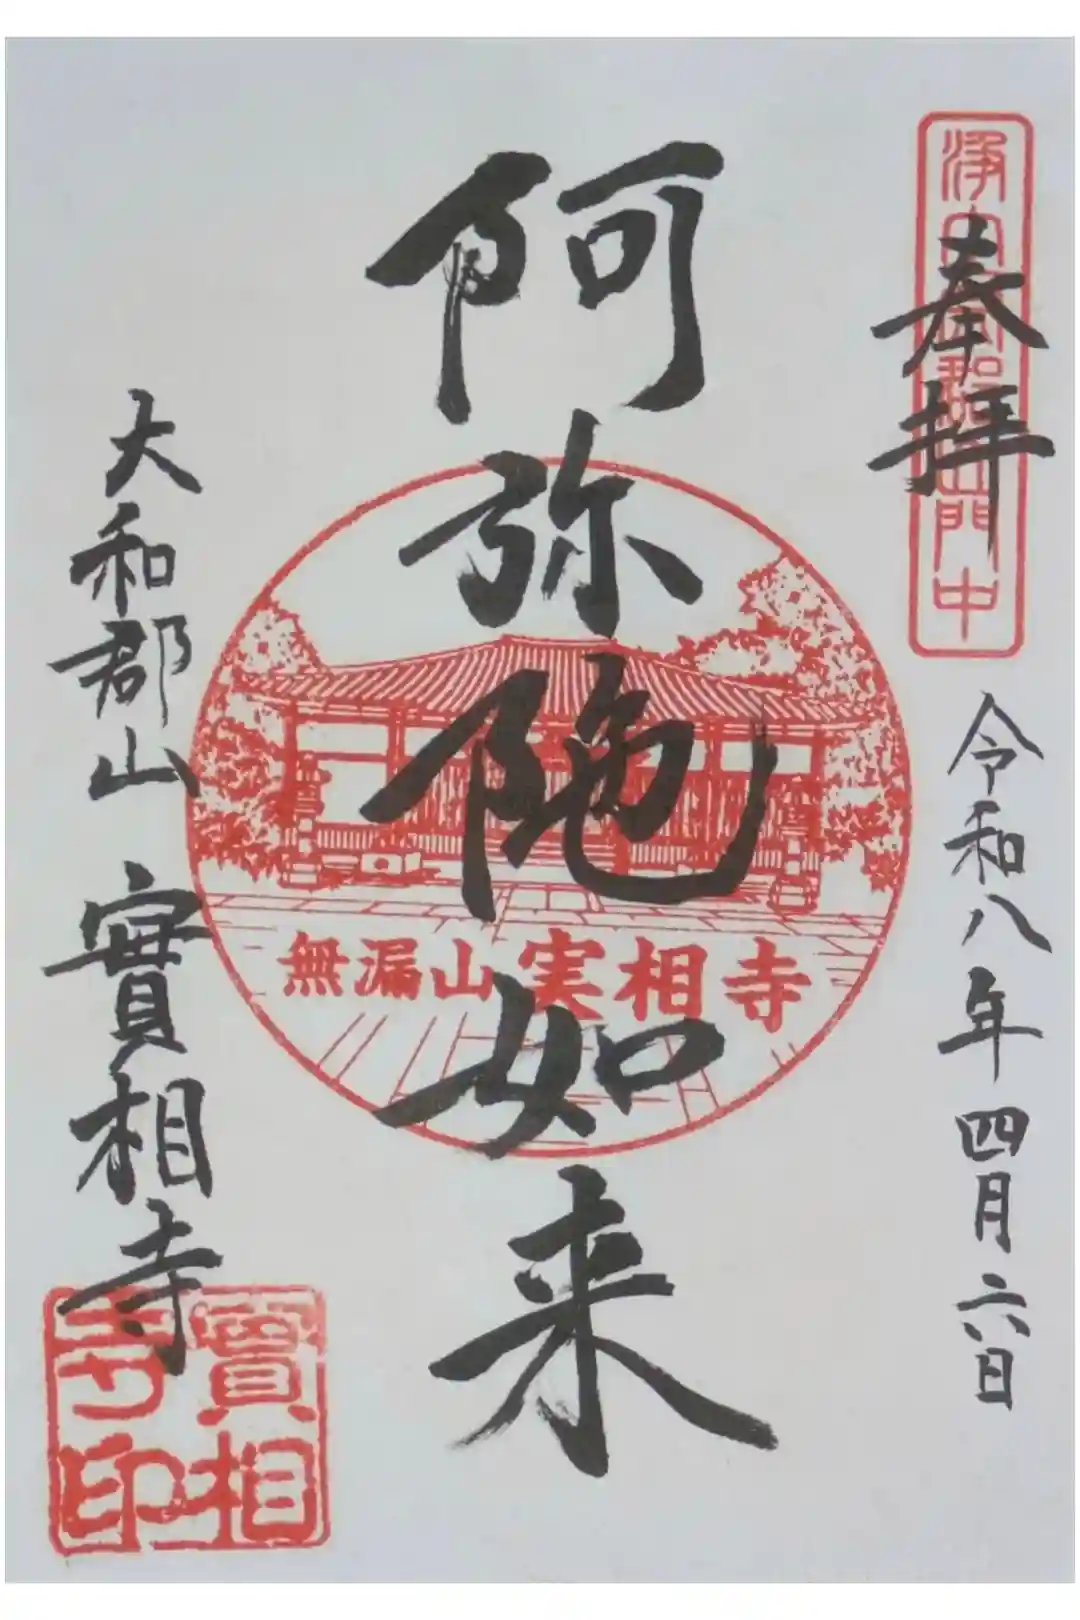 浄土宗郡山門中
奉拝
令和八年四月六日
阿弥陀如来
無漏山実相寺
大和郡山 實相寺
實相
寺印